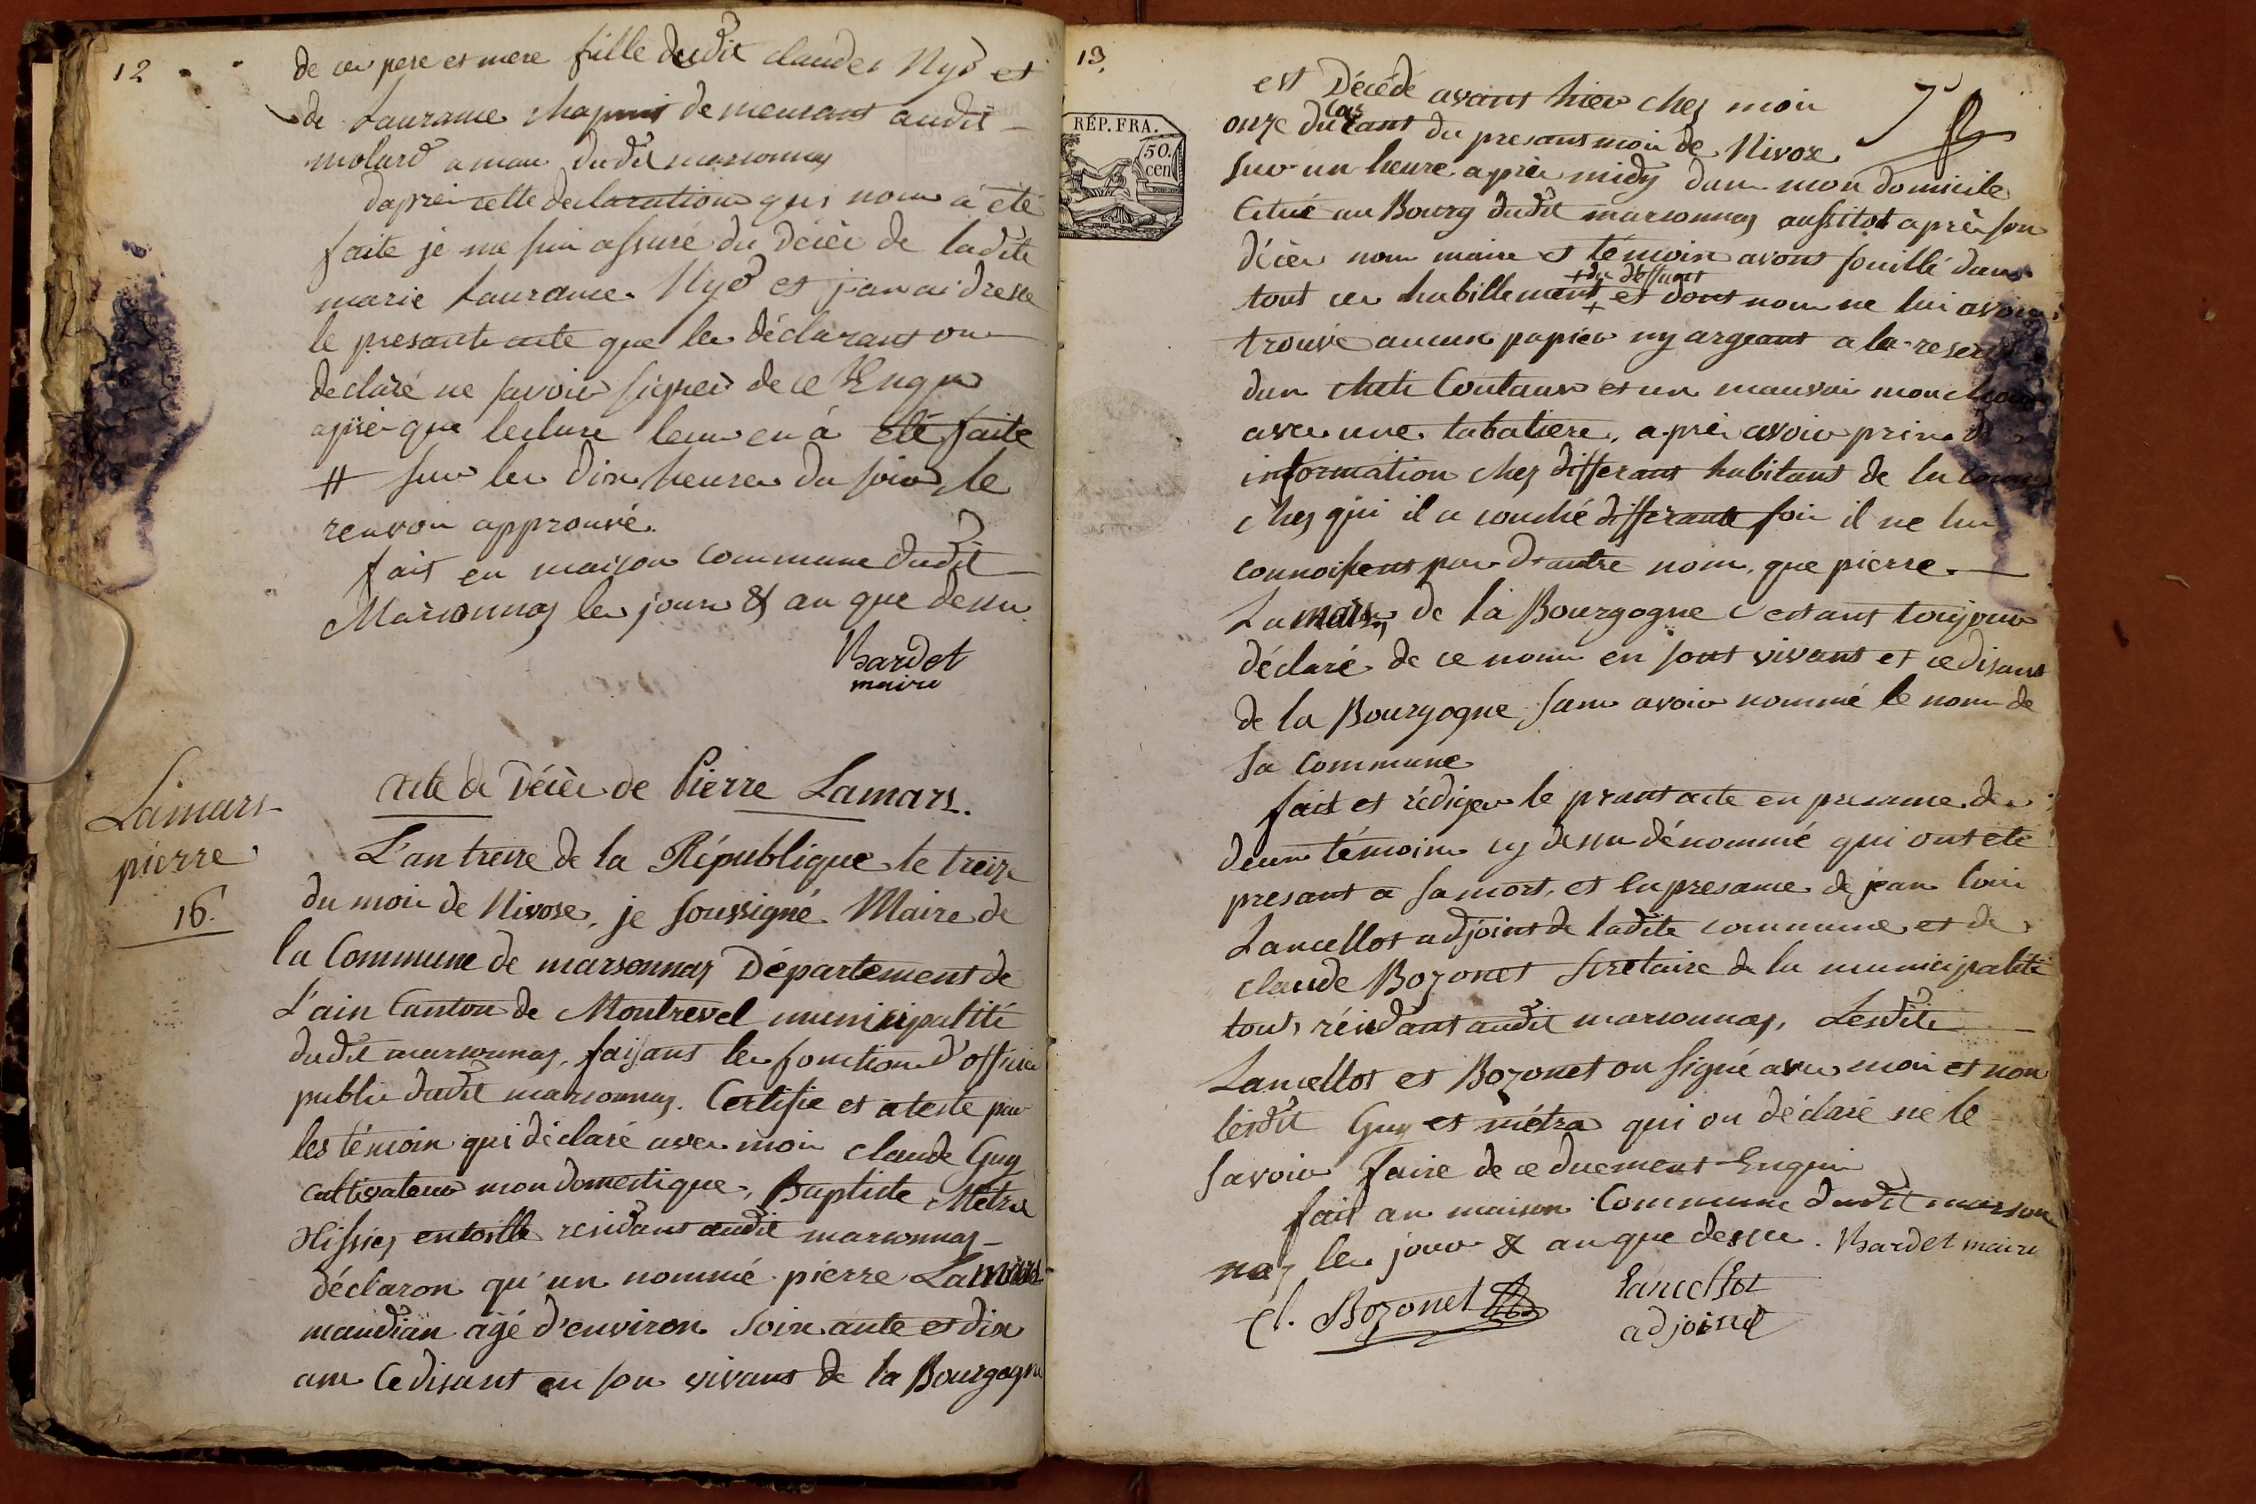 12
de ces pere et mere fille dudit claudes Nyd et
de Laurance Chapuis demeurant audit
molard aman dudit marsonnas
dapres cette declaration qui nous à été
faite je me suis assuré du décès de ladite
marie Laurance Nyd et jan ai dressé
le presant acte que les déclarant on
declaré ne savoir signer de ce Enquis
après que lecture leur en à été faite
# sur les dix heures du soir le
renvoi approuvé.
fait en maison commune dudit
Marsonnas les jours & an que dessu
Bardet
maire
Lamars
pierre
16.
acte de Décès de Pierre Lamars.
L'an treize de la République le treize
du mois de Nivose, je soussigné Maire de
la Commune de marsonnas Département de
L'ain Canton de Montrevel municipalité
dudit marsonnas, faisant les fonction d'officier
public dudit marsonnas. Certifie et ateste par
les témoin qui déclaré avec moi claude Guy
cultivateur mon domestique, Baptiste Métra
tissier entoille residant audit marsonnas
déclaron qu'un nommé pierre Lamars
mandian âgé d'environ soixante et dix
ans Cedisant en son vivant de la Bourgogne
13.
RÉP. FRA.
50
cen
est Décédé avant hier chez moi
onze du courant du presant mois de Nivose
sur un heure après midy dans mon domicile
Citué au Bourg dudit marsonnas aussitot après son
décès nous maire et témoin avons fouillé dans
+ du deffunt
tout ces habillement + et dont nous ne lui avons
trouvé aucun papier ny argeant a la reserve
dun cheti Coutaux et un mauvais mouchoir
avec une tabatiere, après avoir prin d
information chez differant habitant de la
chez qui il a couché differante fois il ne lui
connoissent pas d'autre nom, que pierre
Lamars, de la Bourgogne cetant toujour
déclaré de ce nom en sont vivant et cedisant
de la Bourgogne sans avoir nommé le nom de
sa commune
fait et rédiger le prant acte en presance de
deux témoins cy dessu dénommé qui ont été
presant a sa mort, et en presance de jean loui
Lancellot adjoint de ladite commune et de
claude Bozonet secretaire de la municipalité
touts résidant audit marsonnas, Lesdits
Lancellot et Bozonet on signé avec moi et non
lesdit Guy et métra qui on déclaré ne le
savoir faire de ce duement Enquis
fait an maison Commune dudit marson
nas les jour & an que dessu. Bardet maire
Cl. Bozonet
Lancellot
adjoind